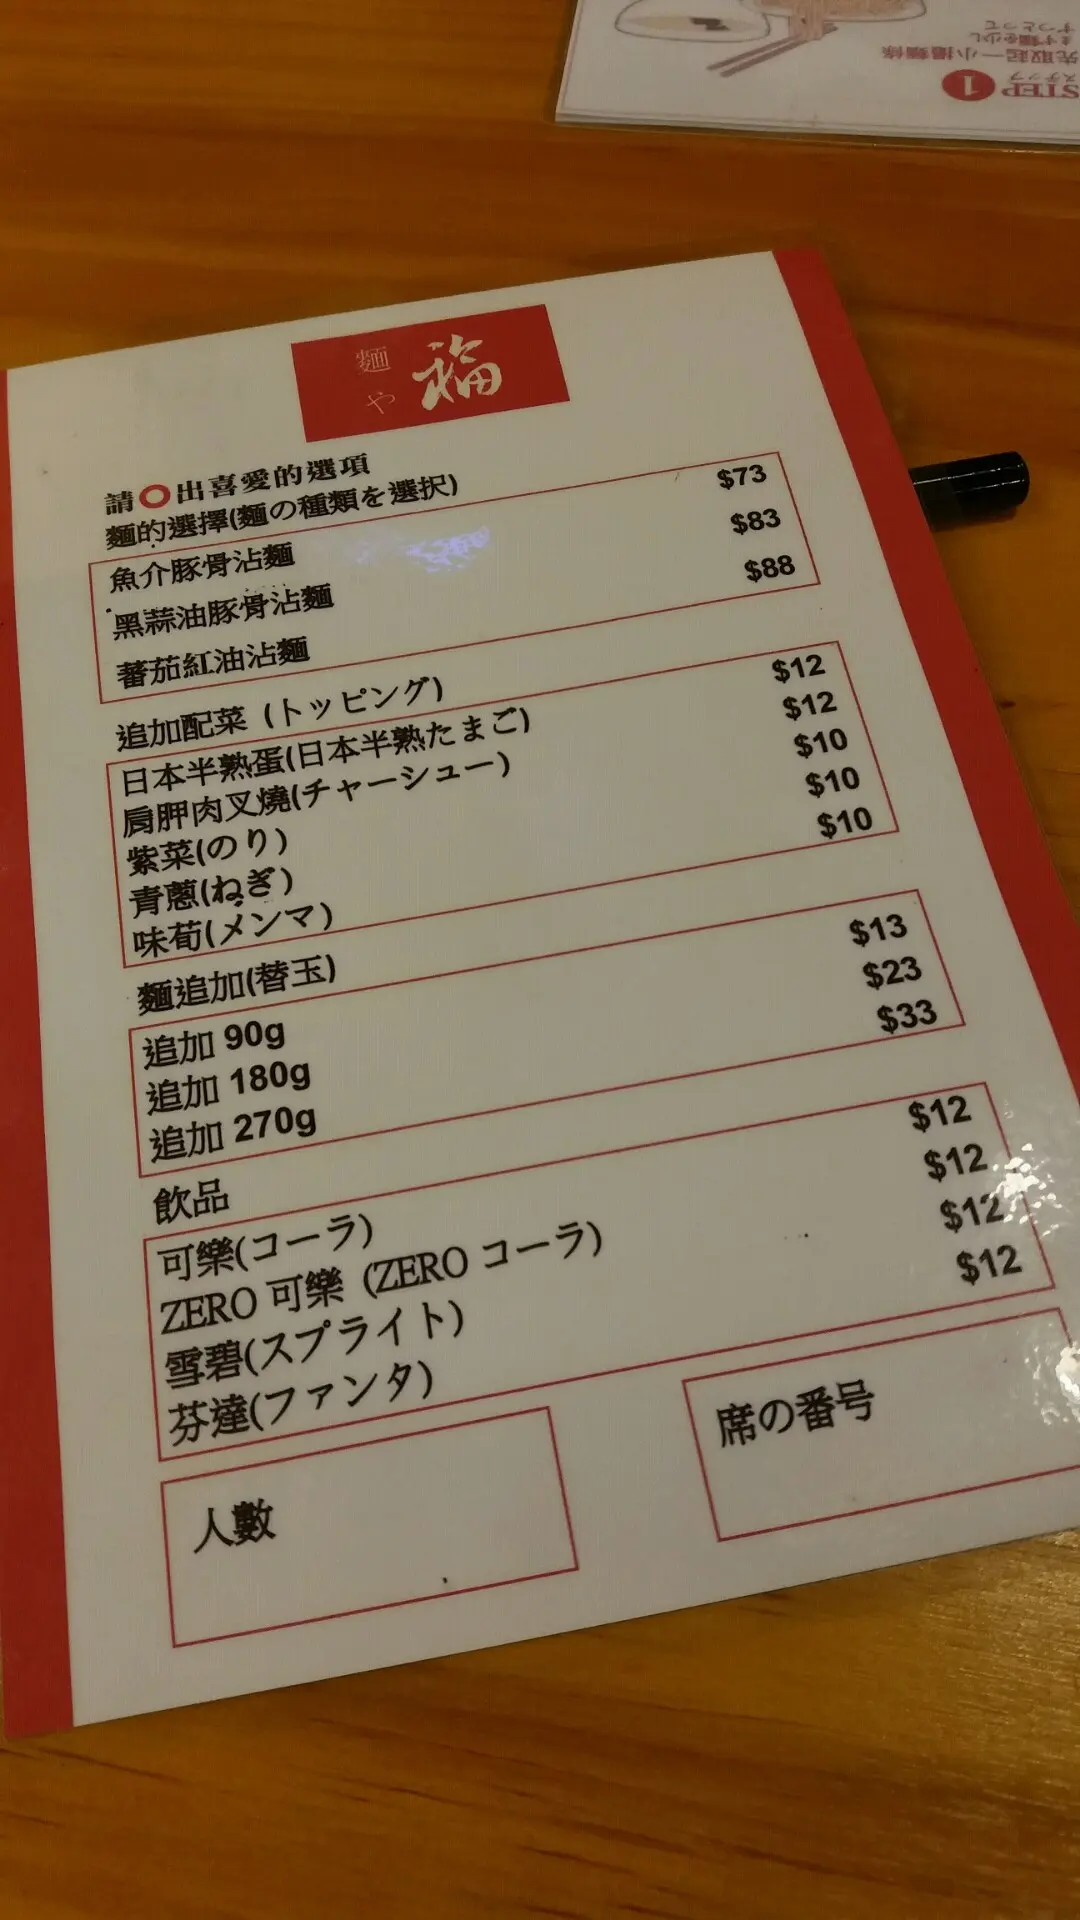 STEP 1
ステップ
先取起一小撮麵條
まず麺を少し
すつとって
麵や 福
請⭕出喜愛的選項
麵的選擇(麵の種類を選択)
魚介豚骨沾麵 $73
黑蒜油豚骨沾麵 $83
蕃茄紅油沾麵 $88
追加配菜 (トッピング)
日本半熟蛋(日本半熟たまご) $12
肩胛肉叉燒(チャーシュー) $12
紫菜(のり) $10
青蔥(ねぎ) $10
味荀(メンマ) $10
麵追加(替玉)
追加 90g $13
追加 180g $23
追加 270g $33
飲品
可樂(コーラ) $12
ZERO 可樂 (ZERO コーラ) $12
雪碧(スプライト) $12
芬達(ファンタ) $12
人數
席の番号